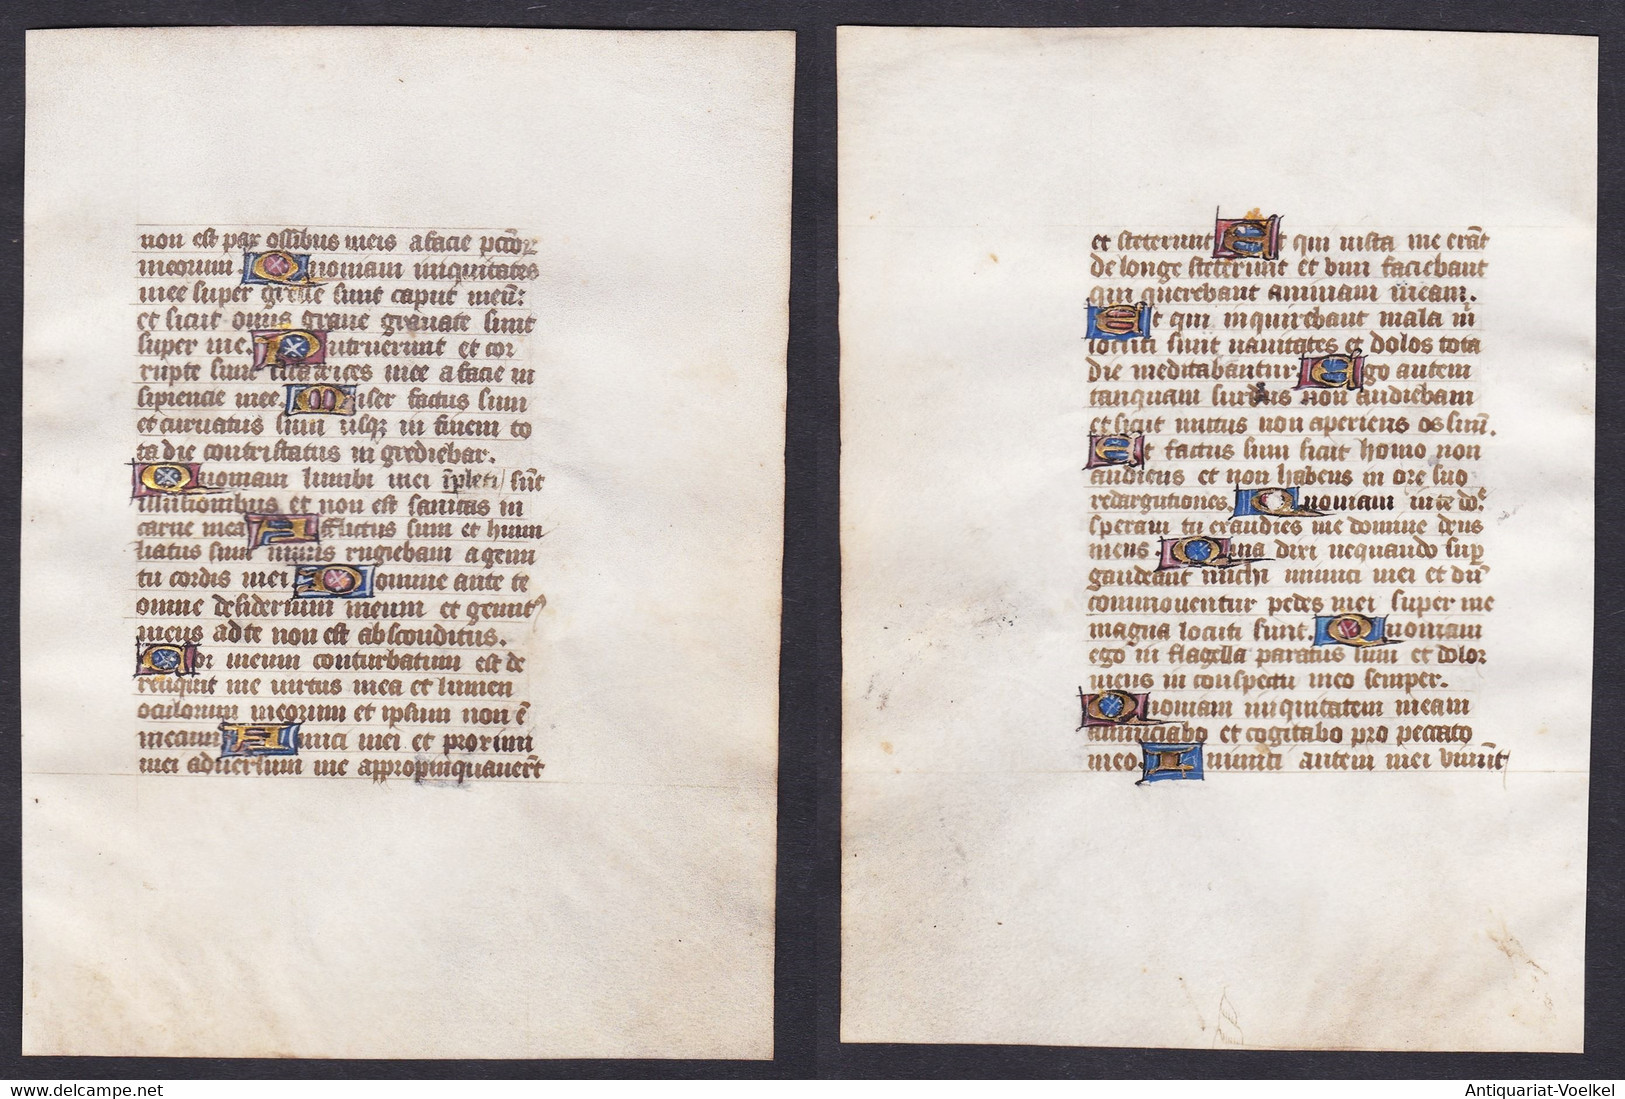 non est pax ossibus meis a facie pctõꝝ
meorum. Quoniam iniquitates
mee super gresse sunt caput meũ:
et sicut onus graue grauate sunt
super me. Putruerunt et cor
rupte sunt cicatrices mee a facie in
sipiencie mee. Miser factus sum
et curuatus sum usqꝫ in finem to
ta die contristatus in grediebar.
Quoniam lumbi mei ĩpleti sũt
illusionibus et non est sanitas in
carne mea. Afflictus sum et humi
liatus sum nimis rugiebam a gemi
tu cordis mei. Domine ante te
omne desiderium meum et gemitꝰ
meus ad te non est absconditus.
Cor meum conturbatum est de
reliquit me uirtus mea et lumen
oculorum meorum et ipsum non ẽ
mecum. Amici mei et proximi
mei aduersum me appropinquauerũt
et steterunt. Et qui iuxta me erãt
de longe steterunt et uim faciebant
qui querebant animam meam.
Et qui inquirebant mala m̃
locuti sunt uanitates et dolos tota
die meditabantur. Ego autem
tanquam surdus non audiebam
et sicut mutus non aperiens os suũ.
Et factus sum sicut homo non
audiens et non habens in ore suo
redargutiones. Quoniam in te dñe
speraui tu exaudies me domine deus
meus. Quia dixi nequando sup̲
gaudeant michi inimici mei et dũ
commouentur pedes mei super me
magna locuti sunt. Quoniam
ego in flagella paratus sum et dolor
meus in conspectu meo semper.
Quoniam iniquitatem meam
annunciabo et cogitabo pro peccato
meo. Inimici autem mei uiuũt
Antiquariat-Voelkel